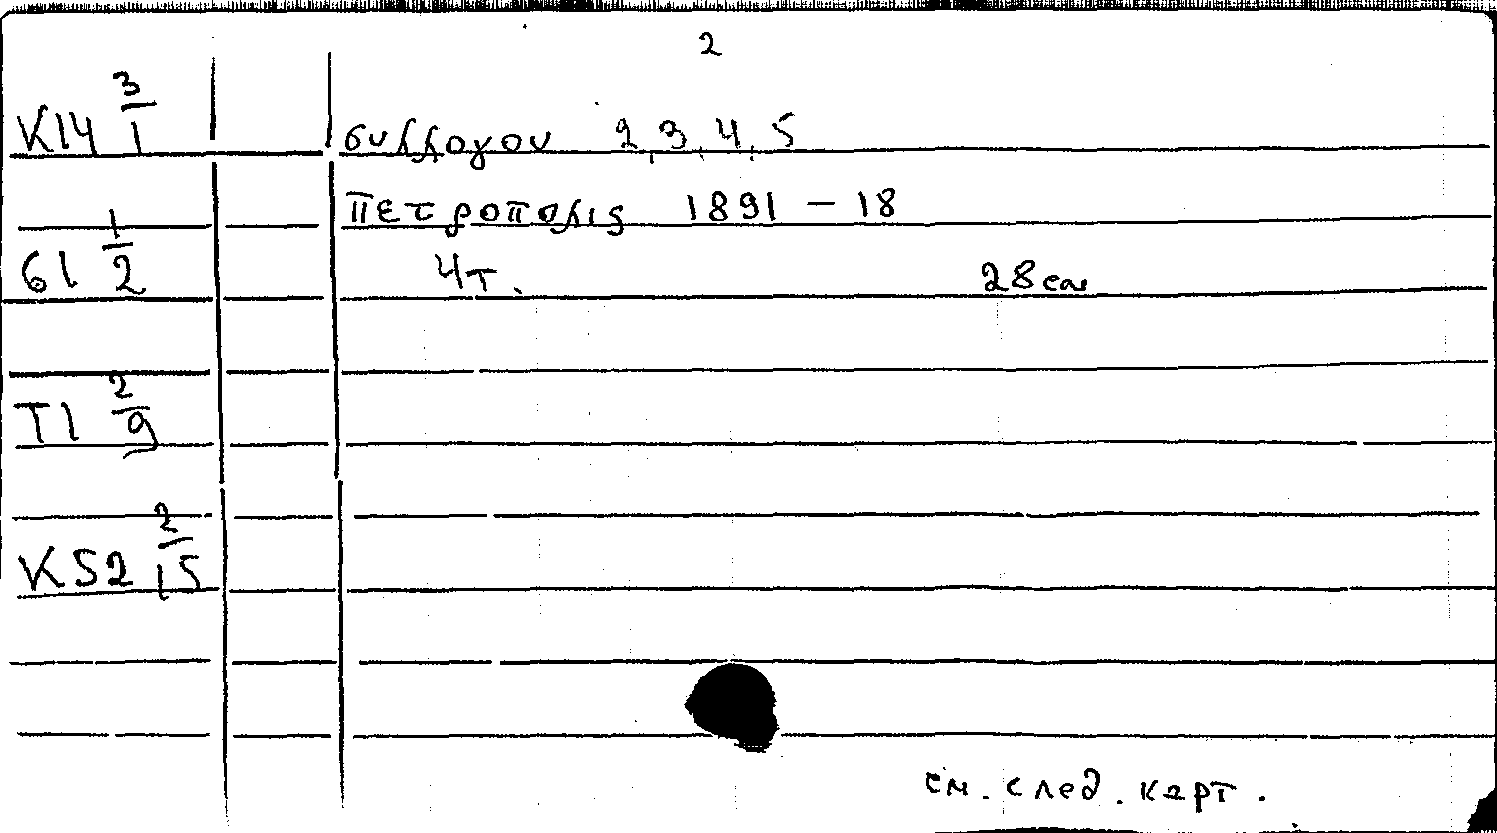 2
K14 3/1 συλλογου 2, 3, 4, 5
πετροπολις 1891 – 18
61 1/2 4т. 28 см
T1 2/9
K52 2/15
см. след. карт.